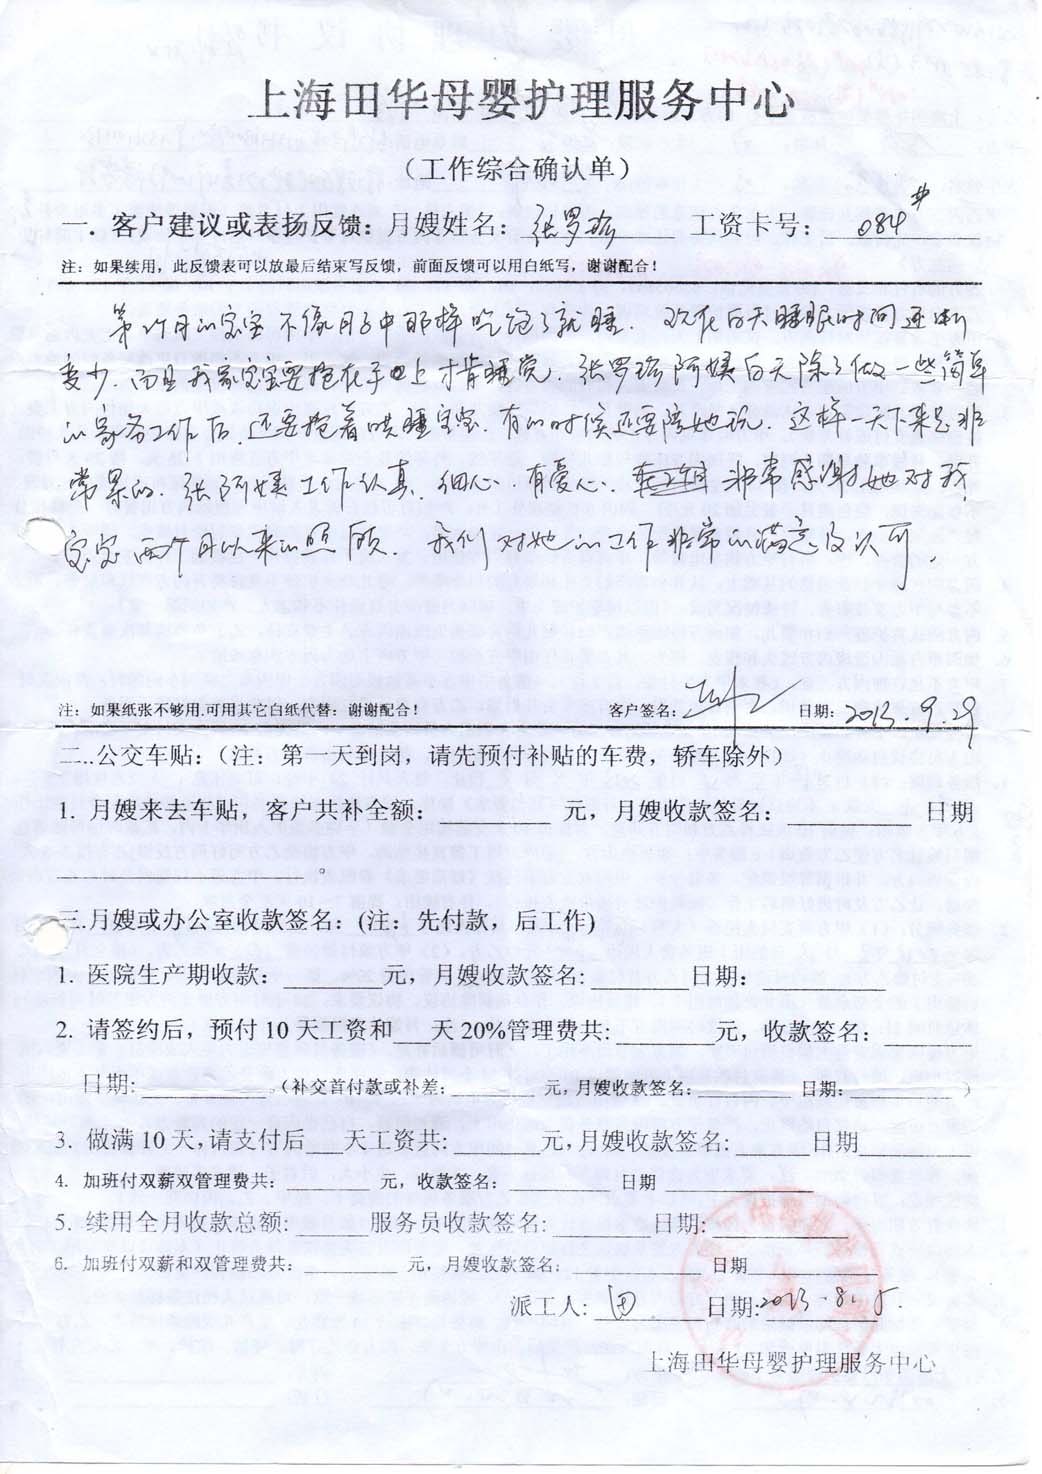 上海田华母婴护理服务中心
（工作综合确认单）
一．客户建议或表扬反馈：月嫂姓名：张罗 工资卡号：084#
注：如果续用，此反馈表可以放最后结束写反馈，前面反馈可以用白纸写，谢谢配合！
第 月的宝宝不像月子中那样吃饱了就睡．现在白天睡眠时间逐渐
变少．而且我家宝宝要抱在手上才肯睡觉，张罗 阿姨白天除了做一些简单
的家务工作后．还要抱着哄睡宝宝．有的时候还要陪她玩．这样一天下来是非
常累的．张阿姨工作认真．细心．有爱心．非常感谢她对我
宝宝两个月以来的照顾．我们对她的工作非常的满意及认可
注：如果纸张不够用,可用其它白纸代替：谢谢配合！ 客户签名： 日期：2013.9.29
二..公交车贴：（注：第一天到岗，请先预付补贴的车费，轿车除外）
1. 月嫂来去车贴，客户共补全额： 元，月嫂收款签名： 日期
三.月嫂或办公室收款签名：(注：先付款，后工作)
1. 医院生产期收款： 元，月嫂收款签名： 日期：
2. 请签约后，预付10天工资和 天20%管理费共： 元，收款签名：
日期： （补交首付款或补差： 元,月嫂收款签名： 日期： ）
3. 做满10天,请支付后 天工资共： 元,月嫂收款签名： 日期
4. 加班付双薪双管理费共： 元，收款签名： 日期
5. 续用全月收款总额： 服务员收款签名： 日期：
6. 加班付双薪和双管理费共： 元，月嫂收款签名： 日期
派工人：田 日期：2013.8.5.
上海田华母婴护理服务中心